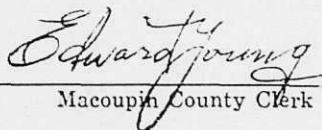 Edward Young
Macoupin County Clerk